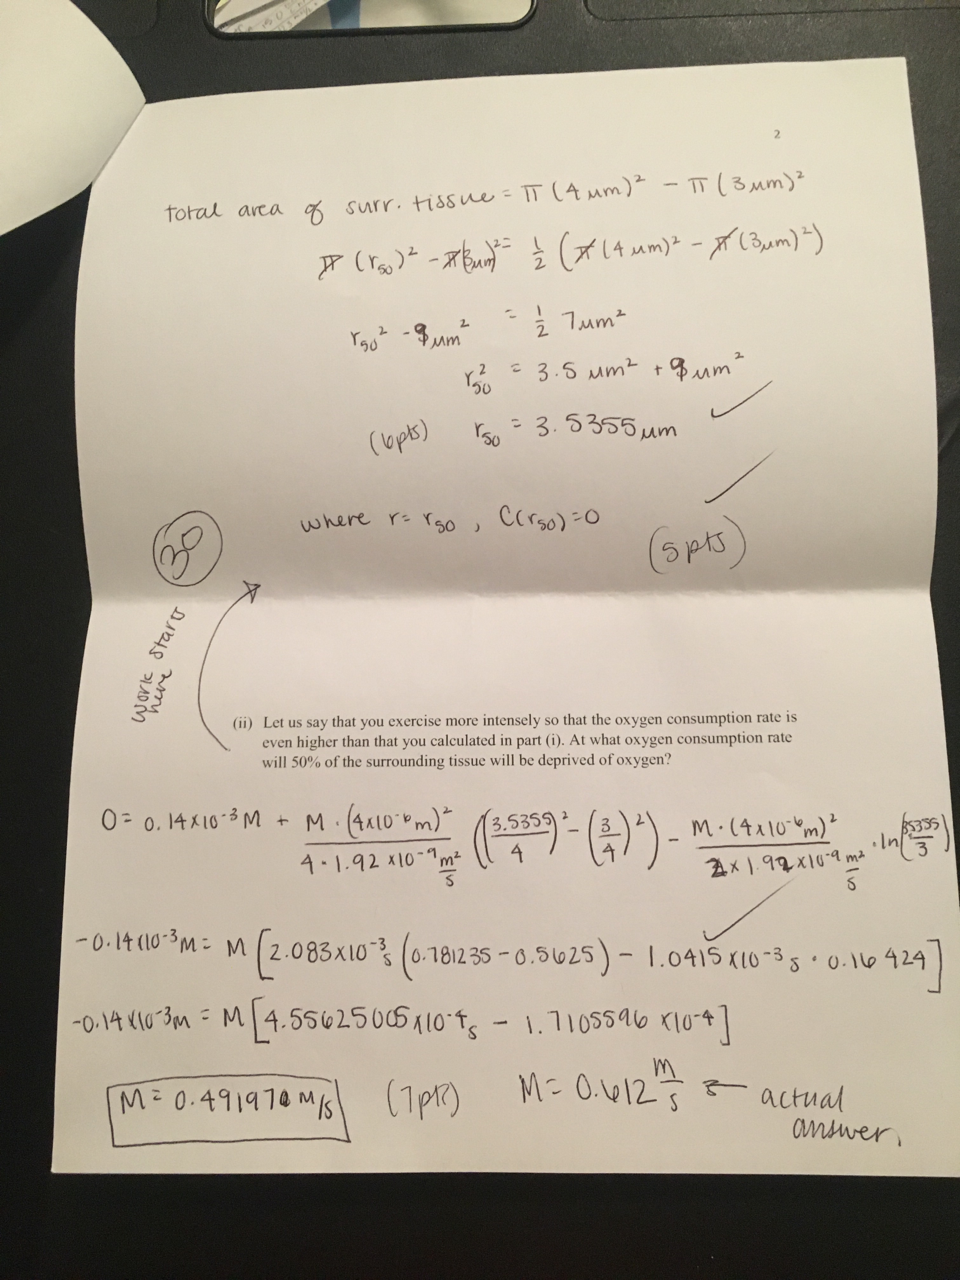 2
total area of surr. tissue = π (4 μm)² - π (3 μm)²
π (r₅₀)² - π(3μm)² = ½ (π(4 μm)² - π(3μm)²)
r₅₀² - 9μm² = ½ 7μm²
r₅₀² = 3.5 μm² + 9μm²
(6pts) r₅₀ = 3.5355μm ✓
where r = r₅₀ , C(r₅₀) = 0 ✓
(5pts)
30
work starts
here
(ii) Let us say that you exercise more intensely so that the oxygen consumption rate is
even higher than that you calculated in part (i). At what oxygen consumption rate
will 50% of the surrounding tissue will be deprived of oxygen?
0 = 0.14x10⁻³M + M·(4x10⁻⁶m)² / 4·1.92 x10⁻⁹ m²/s ((3.5355/4)² - (3/4)²) - M·(4x10⁻⁶m)² / 2 x 1.92x10⁻⁹ m²/s · ln(3.5355/3)
-0.14x10⁻³M = M [2.083x10⁻³s (0.781235 - 0.5625) - 1.0415x10⁻³s · 0.16424] ✓
-0.14x10⁻³M = M[4.55625005x10⁻⁴s - 1.7105596 x10⁻⁴]
M = 0.491970 M/s (7pts) M = 0.612 M/s ← actual
answer.